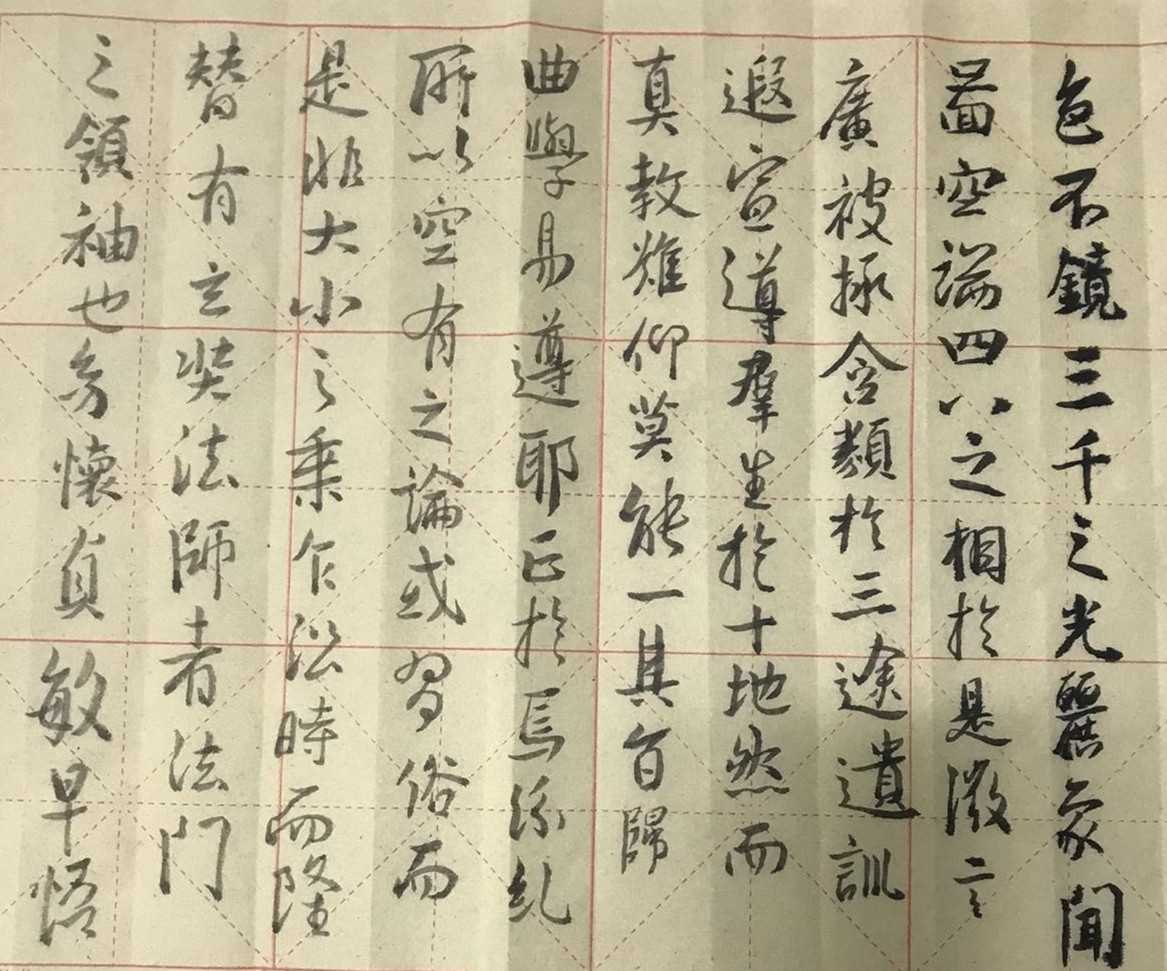 色不鏡三千之光麗象開
圖空端四八之相於是微言
廣被拯含類於三途遺訓
遐宣導羣生於十地然而
真教難仰莫能一其旨歸
曲學易遵耶正於焉紛糺
所以空有之論或習俗而
是非大小之乘乍沿時而隆
替有玄奘法師者法門
之領袖也幼懷貞敏早悟